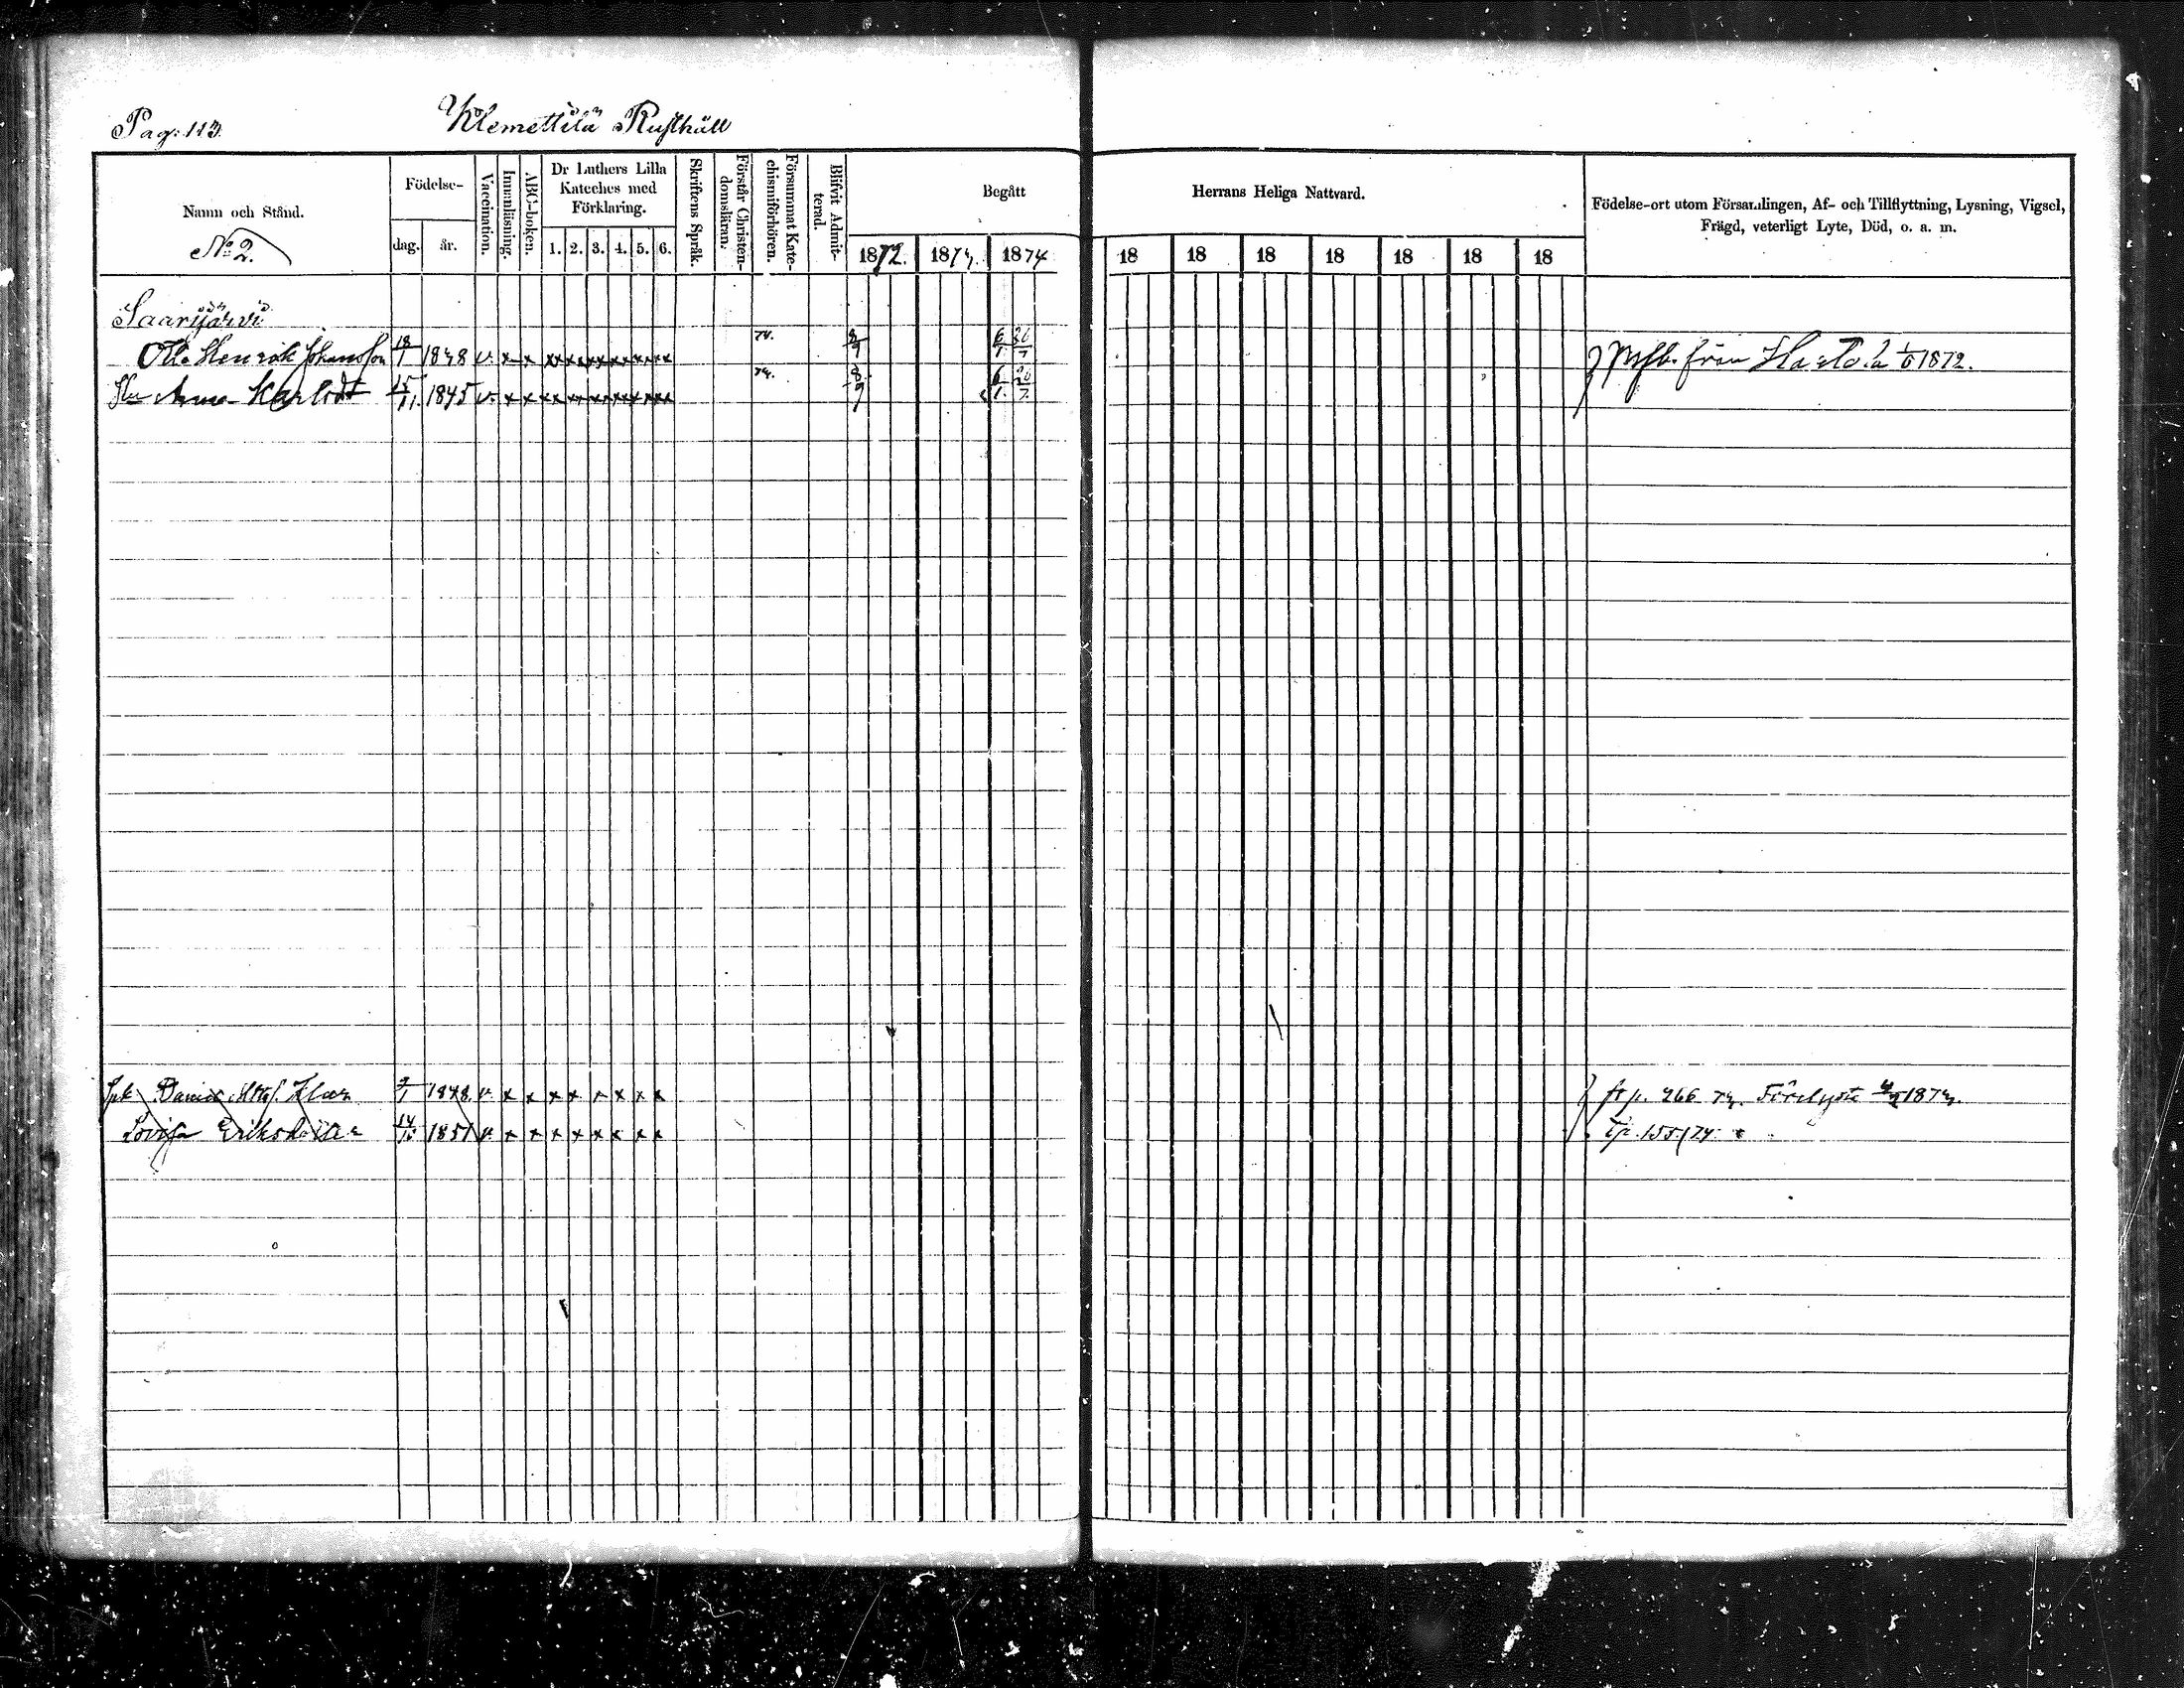 Pag. 113.
Klemettilä Rusthåll
Namn och Stånd.
No 2.
Födelse-
dag.
år.
Vaccination.
Innanläsning.
ABC-boken.
Dr Luthers Lilla Kateches med Förklaring.
1. 2. 3. 4. 5. 6.
Skriftens Språk.
Förstår Christendomsläran.
Försummat Katechismiförhören.
Blifvit Admitterad.
Begått
1872. 1873. 1874
Herrans Heliga Nattvard.
18 18 18 18 18 18 18
Födelse-ort utom Församlingen, Af- och Tillflyttning, Lysning, Vigsel,
Frägd, veterligt Lyte, Död, o. a. m.
Saarijärvi
Otto Henrik Johansson 18/1 1848 v. x x xx xx xx xx xx xx 74. 8/9 6/1 26/7 från 1872.
Hu Anna Karlsdr 15/11. 1845 v. x x xx xx xx xx xx xx 74. 8/9 6/1. 26/7
Daniel 1848 v. x x x x x x x x p. 266 73. 1873.
Lovisa Eriksdotter 1851 v. x x x x x x x x p. 155/74